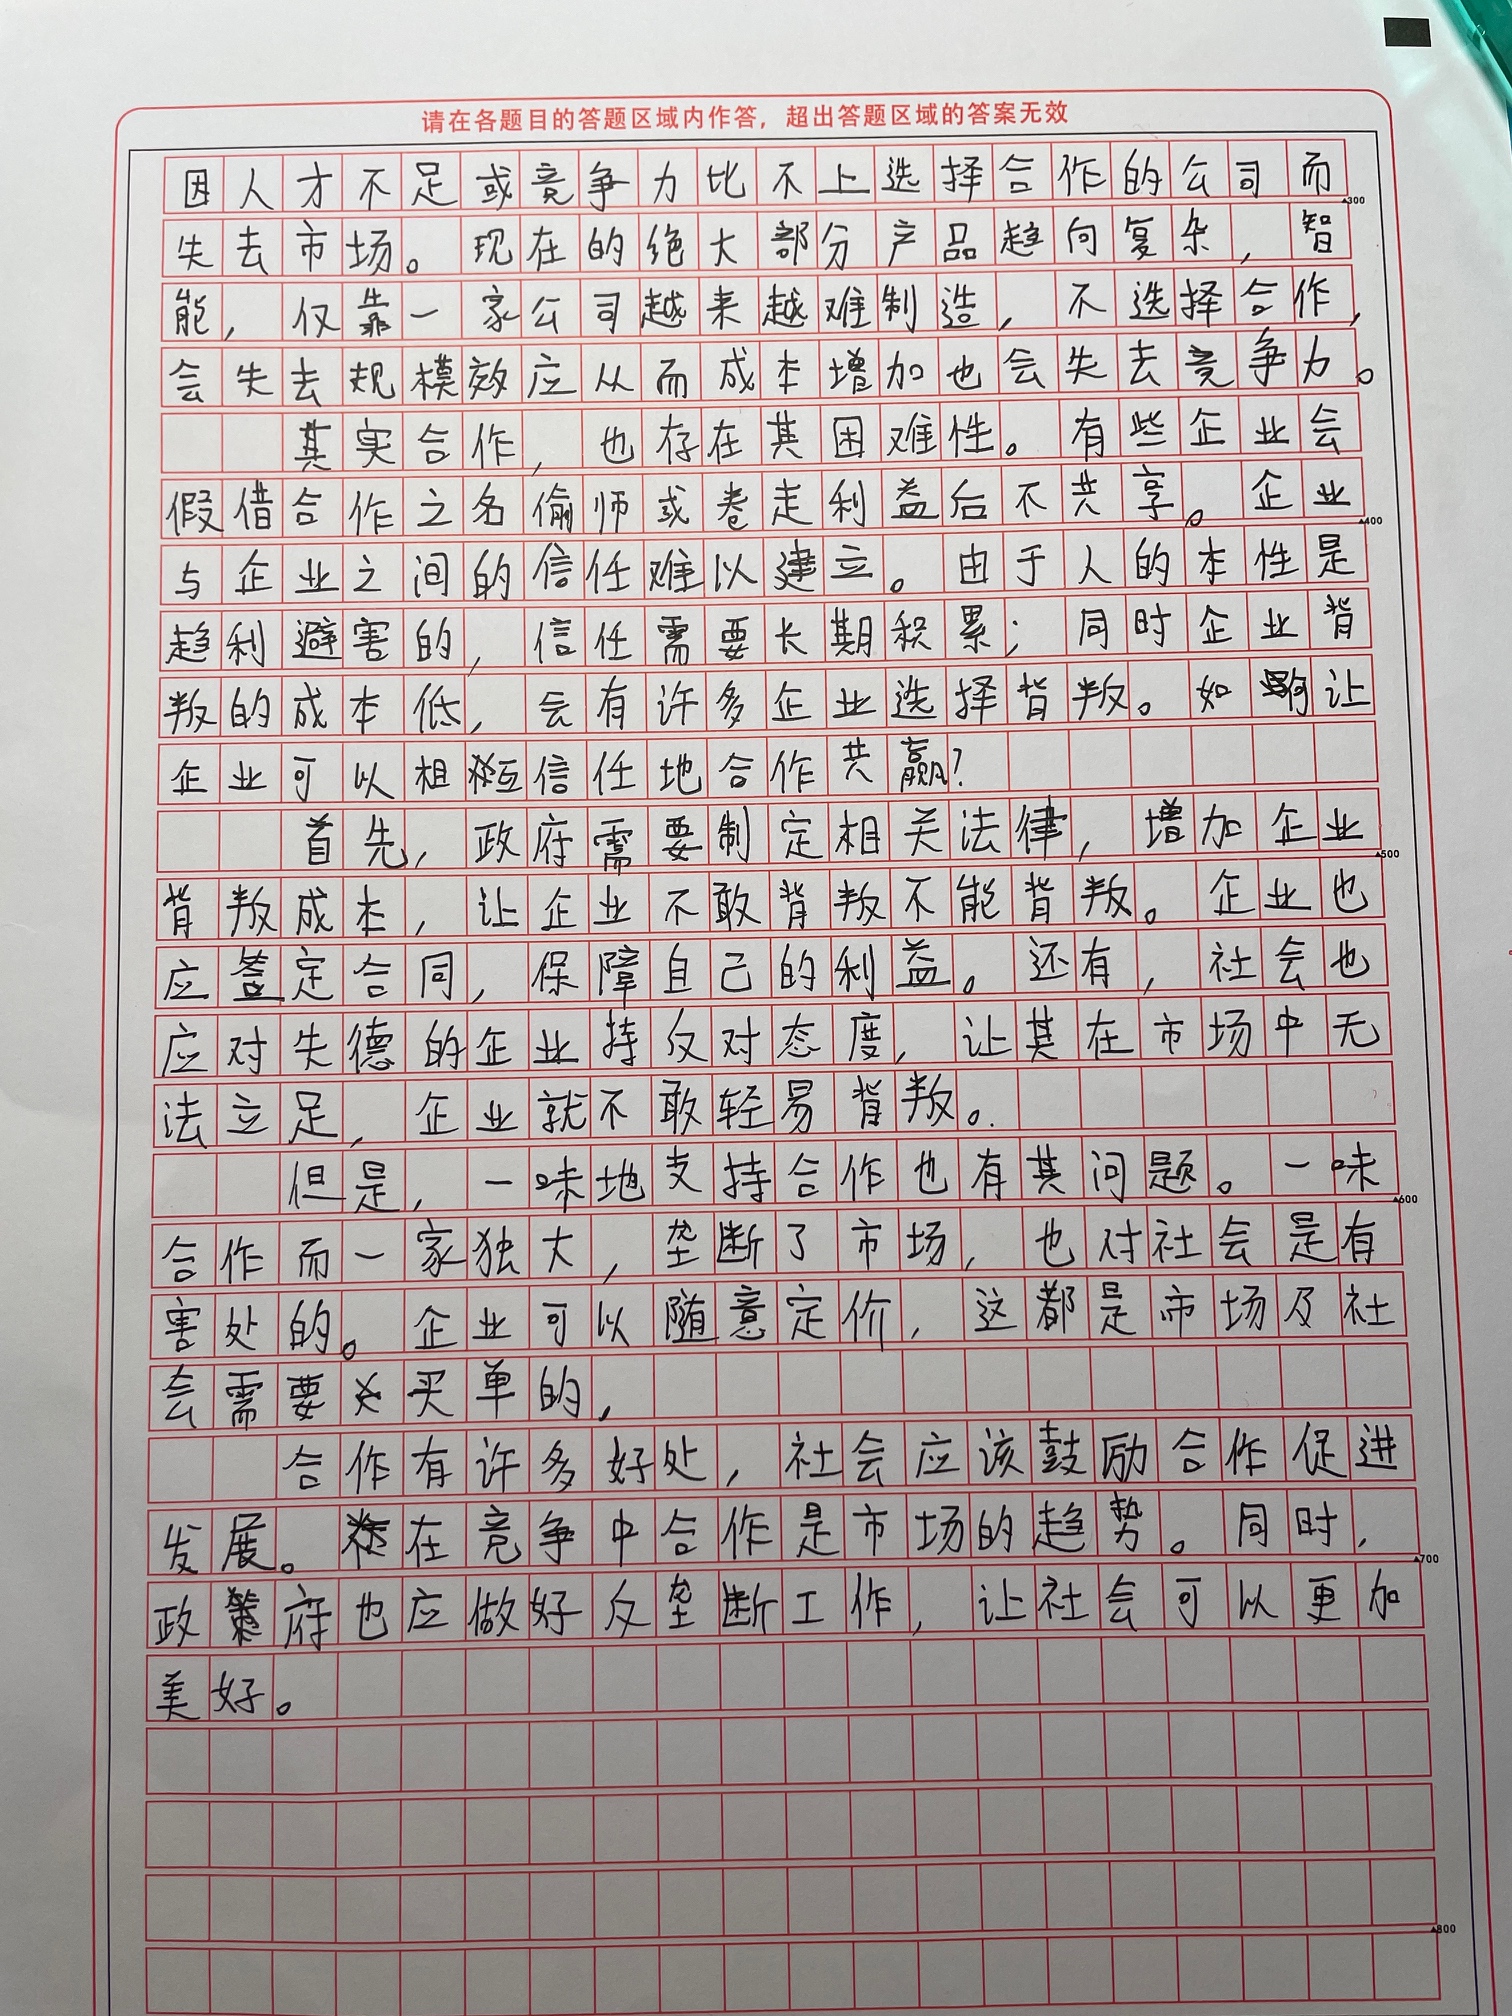 请在各题目的答题区域内作答，超出答题区域的答案无效
因人才不足或竞争力比不上选择合作的公司而
▲300
失去市场。现在的绝大部分产品趋向复杂，智
能，仅靠一家公司越来越难制造，不选择合作，
会失去规模效应从而成本增加也会失去竞争力。
其实合作，也存在其困难性。有些企业会
假借合作之名偷师或卷走利益后不共享。企业
▲400
与企业之间的信任难以建立。由于人的本性是
趋利避害的，信任需要长期积累；同时企业背
叛的成本低，会有许多企业选择背叛。如何让
企业可以相互信任地合作共赢？
首先，政府需要制定相关法律，增加企业
▲500
背叛成本，让企业不敢背叛不能背叛。企业也
应签定合同，保障自己的利益。还有，社会也
应对失德的企业持反对态度，让其在市场中无
法立足，企业就不敢轻易背叛。
但是，一味地支持合作也有其问题。一味
▲600
合作而一家独大，垄断了市场，也对社会是有
害处的。企业可以随意定价，这都是市场及社
会需要买单的，
合作有许多好处，社会应该鼓励合作促进
发展。在竞争中合作是市场的趋势。同时，
▲700
政府也应做好反垄断工作，让社会可以更加
美好。
▲800